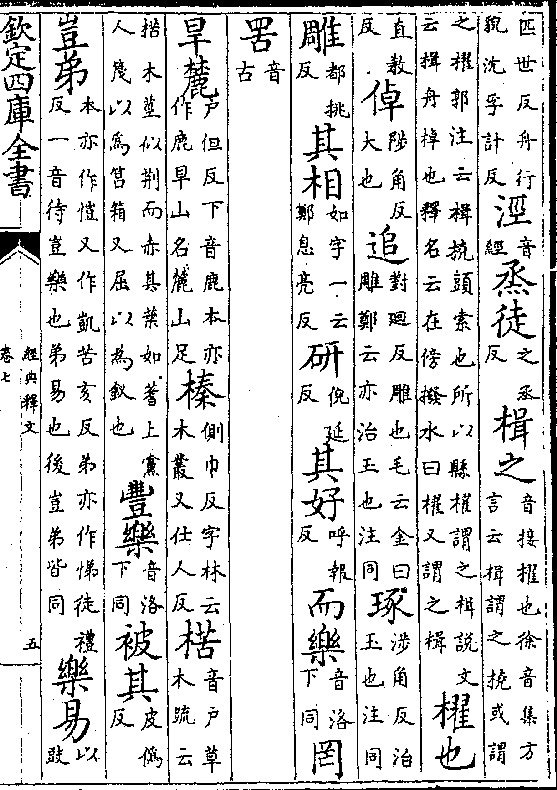 匹世反舟行貌沈孚計反涇音經烝徒之丞反楫之音接櫂也徐音集方言云楫謂之橈或謂
之櫂郭注云楫橈頭索也所以縣櫂謂之楫說文云楫舟棹也釋名云在傍撥水曰櫂又謂之楫櫂也
直教反倬陟角反大也追對廻反雕也毛云金曰雕鄭云亦治玉也注同琢涉角反治玉也注同
雕都挑反其相如字一云鄭息亮反研倪延反其好呼報反而樂音洛下同罔
罟音古
旱麓户但反下音鹿本亦作鹿旱山名麓山足榛側巾反字林云木叢又仕人反楛音户草木疏云
楛木莖似荆而赤其葉如蓍上黨人篾以為筥箱又屈以為釵也豐樂音洛下同被其皮僞反
豈弟本亦作愷又作凱苦亥反弟亦作悌徒禮反一音待豈樂也弟易也後豈弟皆同樂易以豉
欽定四庫全書
經典釋文
卷七
五